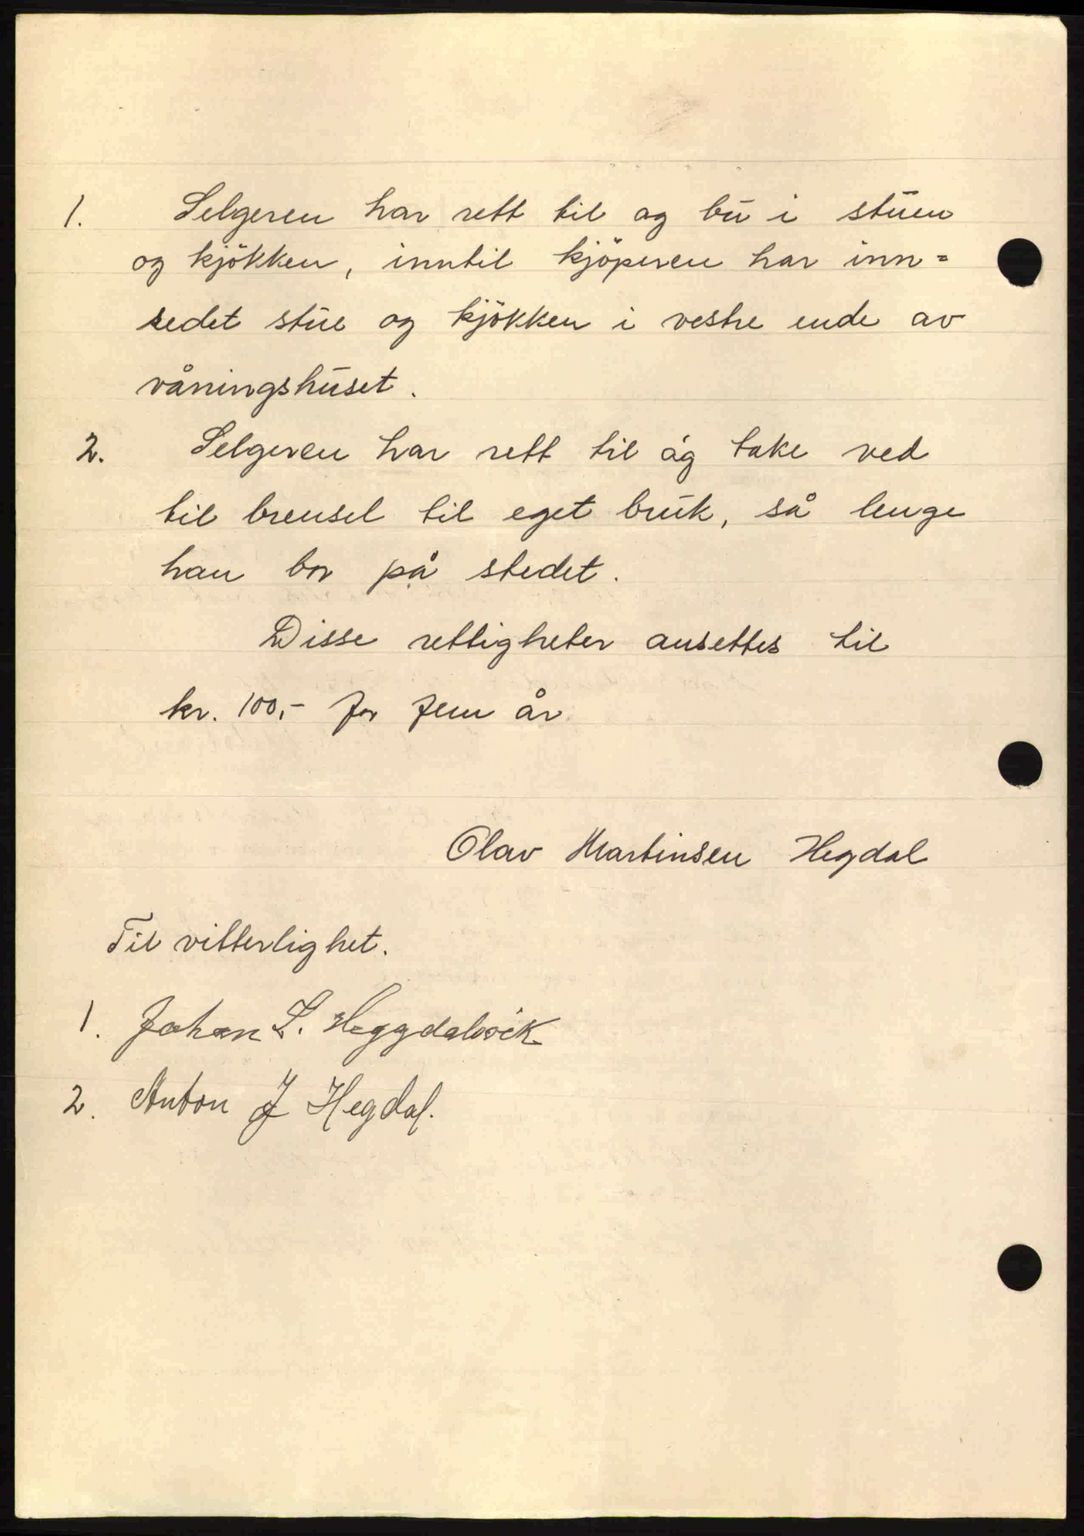 1. Selgeren har rett til og bu i stuen
og kjökken, inntil kjöperen har inn=
redet stue og kjökken i vestre ende av
våningshuset.
2. Selgeren har rett til åg take ved
til brensel til eget bruk, så lenge
han bor på stedet.
Disse rettigheter ansettes til
kr. 100,- for fem år.
Olav Martinsen Hegdal
Til vitterlighet.
1. Johan L. Heggdalsvik
2. Anton J Hegdal.